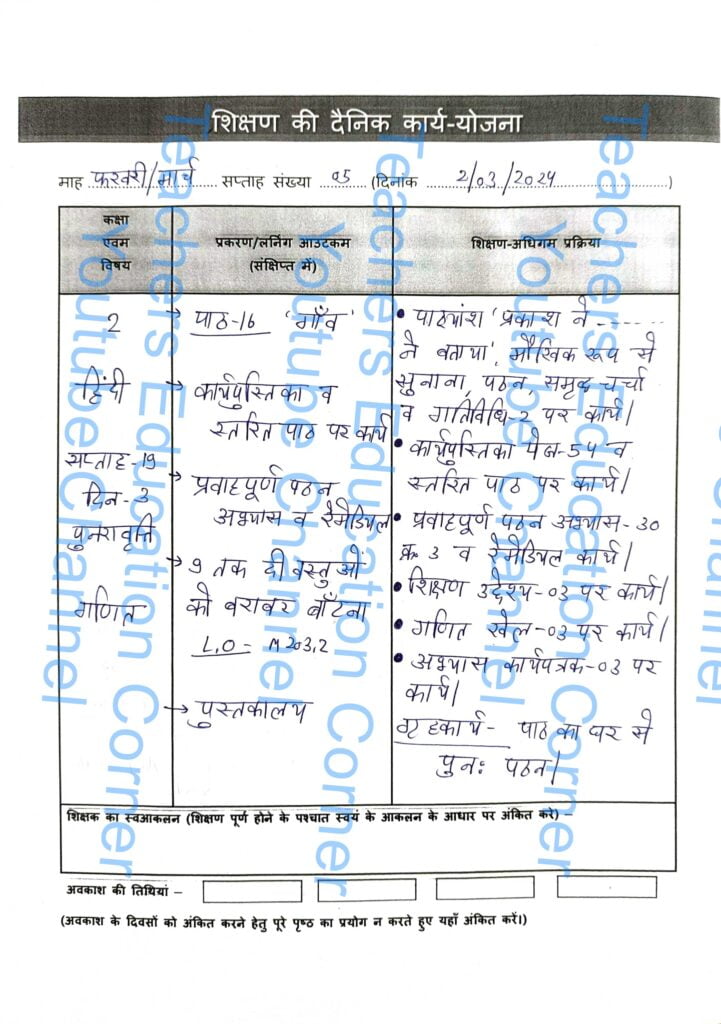 शिक्षण की दैनिक कार्य-योजना
माह फरवरी/मार्च सप्ताह संख्या 05 (दिनांक 2/03/2024)
कक्षा
एवम
विषय
प्रकरण/लर्निंग आउटकम
(संक्षिप्त में)
शिक्षण-अधिगम प्रक्रिया
2
हिंदी
सप्ताह-19
दिन-3
पुनरावृत्ति
गणित
→ पाठ-16 'गाँव'
→ कार्यपुस्तिका व
स्तरित पाठ पर कार्य
→ प्रवाहपूर्ण पठन
अभ्यास व रेमेडियल
→ 9 तक दी वस्तुओं
को बराबर बाँटना
L.O = M203.2
→ पुस्तकालय
• पाठ्यांश 'प्रकाश ने ------
ने बताया', मौखिक रूप से
सुनाना, पठन, समृद्ध चर्चा
व गतिविधि-2 पर कार्य।
• कार्यपुस्तिका पेज-54 व
स्तरित पाठ पर कार्य।
• प्रवाहपूर्ण पठन अभ्यास-30
क्र 3 व रेमेडियल कार्य।
• शिक्षण उद्देश्य-03 पर कार्य।
• गणित खेल-03 पर कार्य।
• अभ्यास कार्यपत्रक-03 पर
कार्य।
गृहकार्य- पाठ का घर से
पुनः पठन।
शिक्षक का स्वआकलन (शिक्षण पूर्ण होने के पश्चात स्वयं के आकलन के आधार पर अंकित करे) –
अवकाश की तिथियां –
(अवकाश के दिवसों को अंकित करने हेतु पूरे पृष्ठ का प्रयोग न करते हुए यहाँ अंकित करें।)
Teachers Education Corner
Youtube Channel
Teachers Education Corner
Youtube Channel
Teachers Education Corner
Youtube Channel